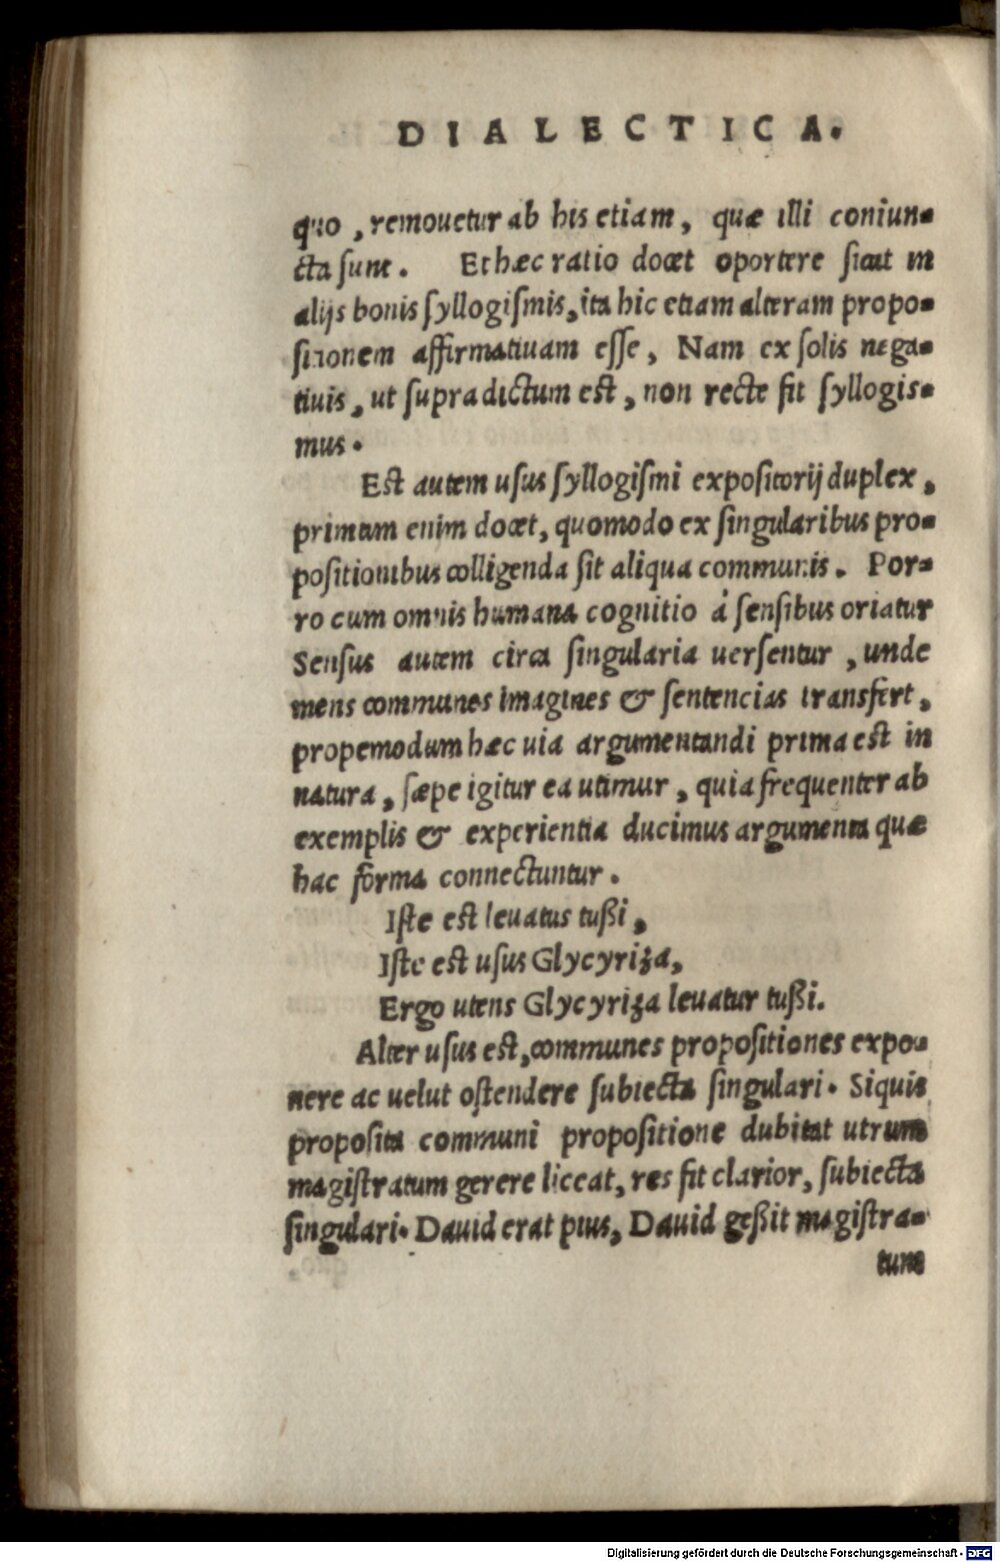 DIALECTICA.
quo, remouetur ab his etiam, quæ illi coniun-
cta sunt. Et hæc ratio docet oportere sicut in
alijs bonis syllogismis, ita hic etiam alteram propo-
sitionem affirmatiuam esse, Nam ex solis nega-
tiuis, ut supra dictum est, non recte fit syllogis-
mus.
Est autem usus syllogismi expositorij duplex,
primum enim docet, quomodo ex singularibus pro-
positionibus colligenda sit aliqua communis. Por-
ro cum omnis humana cognitio á sensibus oriatur
Sensus autem circa singularia uersentur, unde
mens communes imagines & sentencias transfert,
propemodum hæc uia argumentandi prima est in
natura, sæpe igitur ea utimur, quia frequenter ab
exemplis & experientia ducimus argumenta quæ
hac forma connectuntur.
Iste est leuatus tußi,
Iste est usus Glycyriza,
Ergo utens Glycyriza leuatur tußi.
Alter usus est, communes propositiones expo-
nere ac uelut ostendere subiecta singulari. Siquis
proposita communi propositione dubitat utrum
magistratum gerere liceat, res fit clarior, subiecta
singulari. Dauid erat pius, Dauid geßit magistra-
tum
Digitalisierung gefördert durch die Deutsche Forschungsgemeinschaft - DFG